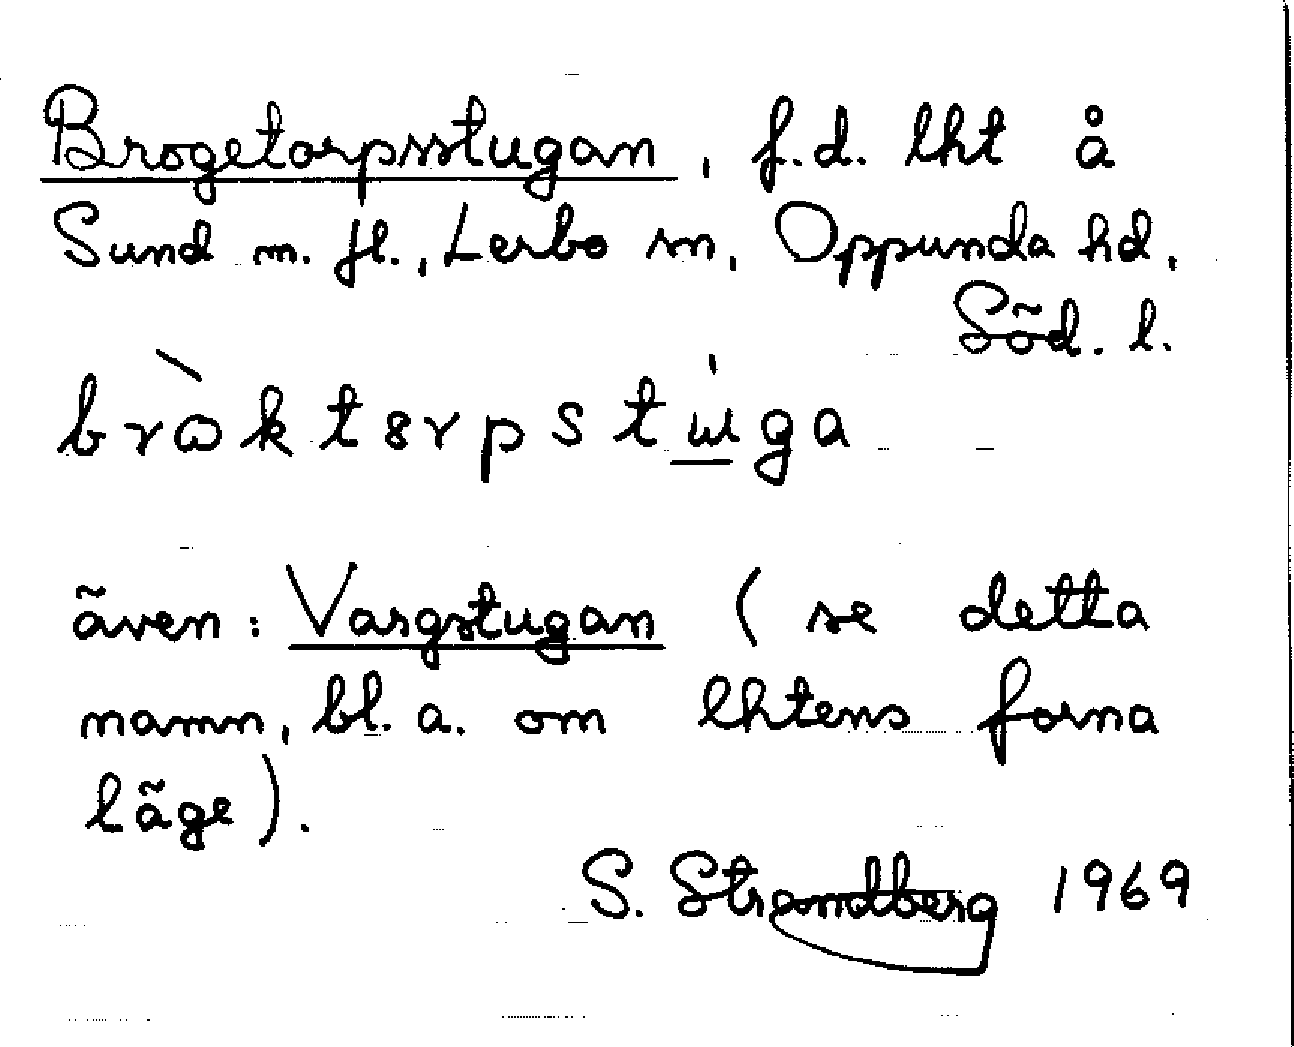 Brogetorpsstugan, f.d. lht å
Sund m. fl., Lerbo sn, Oppunda hd,
Söd. l.
även: Vargstugan (se detta
namn, bl. a. om lhtens forna
läge).
S. Strandberg 1969